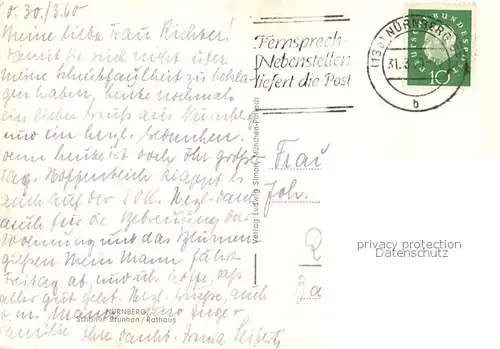 d. 30./3.60
Meine liebe Frau Richter!
Damit Sie sich nicht über
meine Schreibfaulheit zu beklagen
haben, heute nochmals
ein lieber Gruß aus Nürnberg
und ein herzl. Gedenken,
denn heute ist doch Ihr großer
Tag. Hoffentlich klappt es
auch auf der Herzl. Dank
auch für die Betreuung der
Wohnung und das Blumen
gießen. Mein Mann fährt
Freitag ab, und ich hoffe, daß
alles gut geht. Herzl. Grüße, auch
a. m.
Familie Ihre dankb. Irma
NÜRNBERG
Schöner Brunnen / Rathaus
Verlag Ludwig Simon, München-Pullach
Fernsprech-
Nebenstellen
liefert die Post
(13a) NÜRNBERG
31.3.
b
DEUTSCHE BUNDESPOST
10
Frau
Joh.
privacy protection
Datenschutz